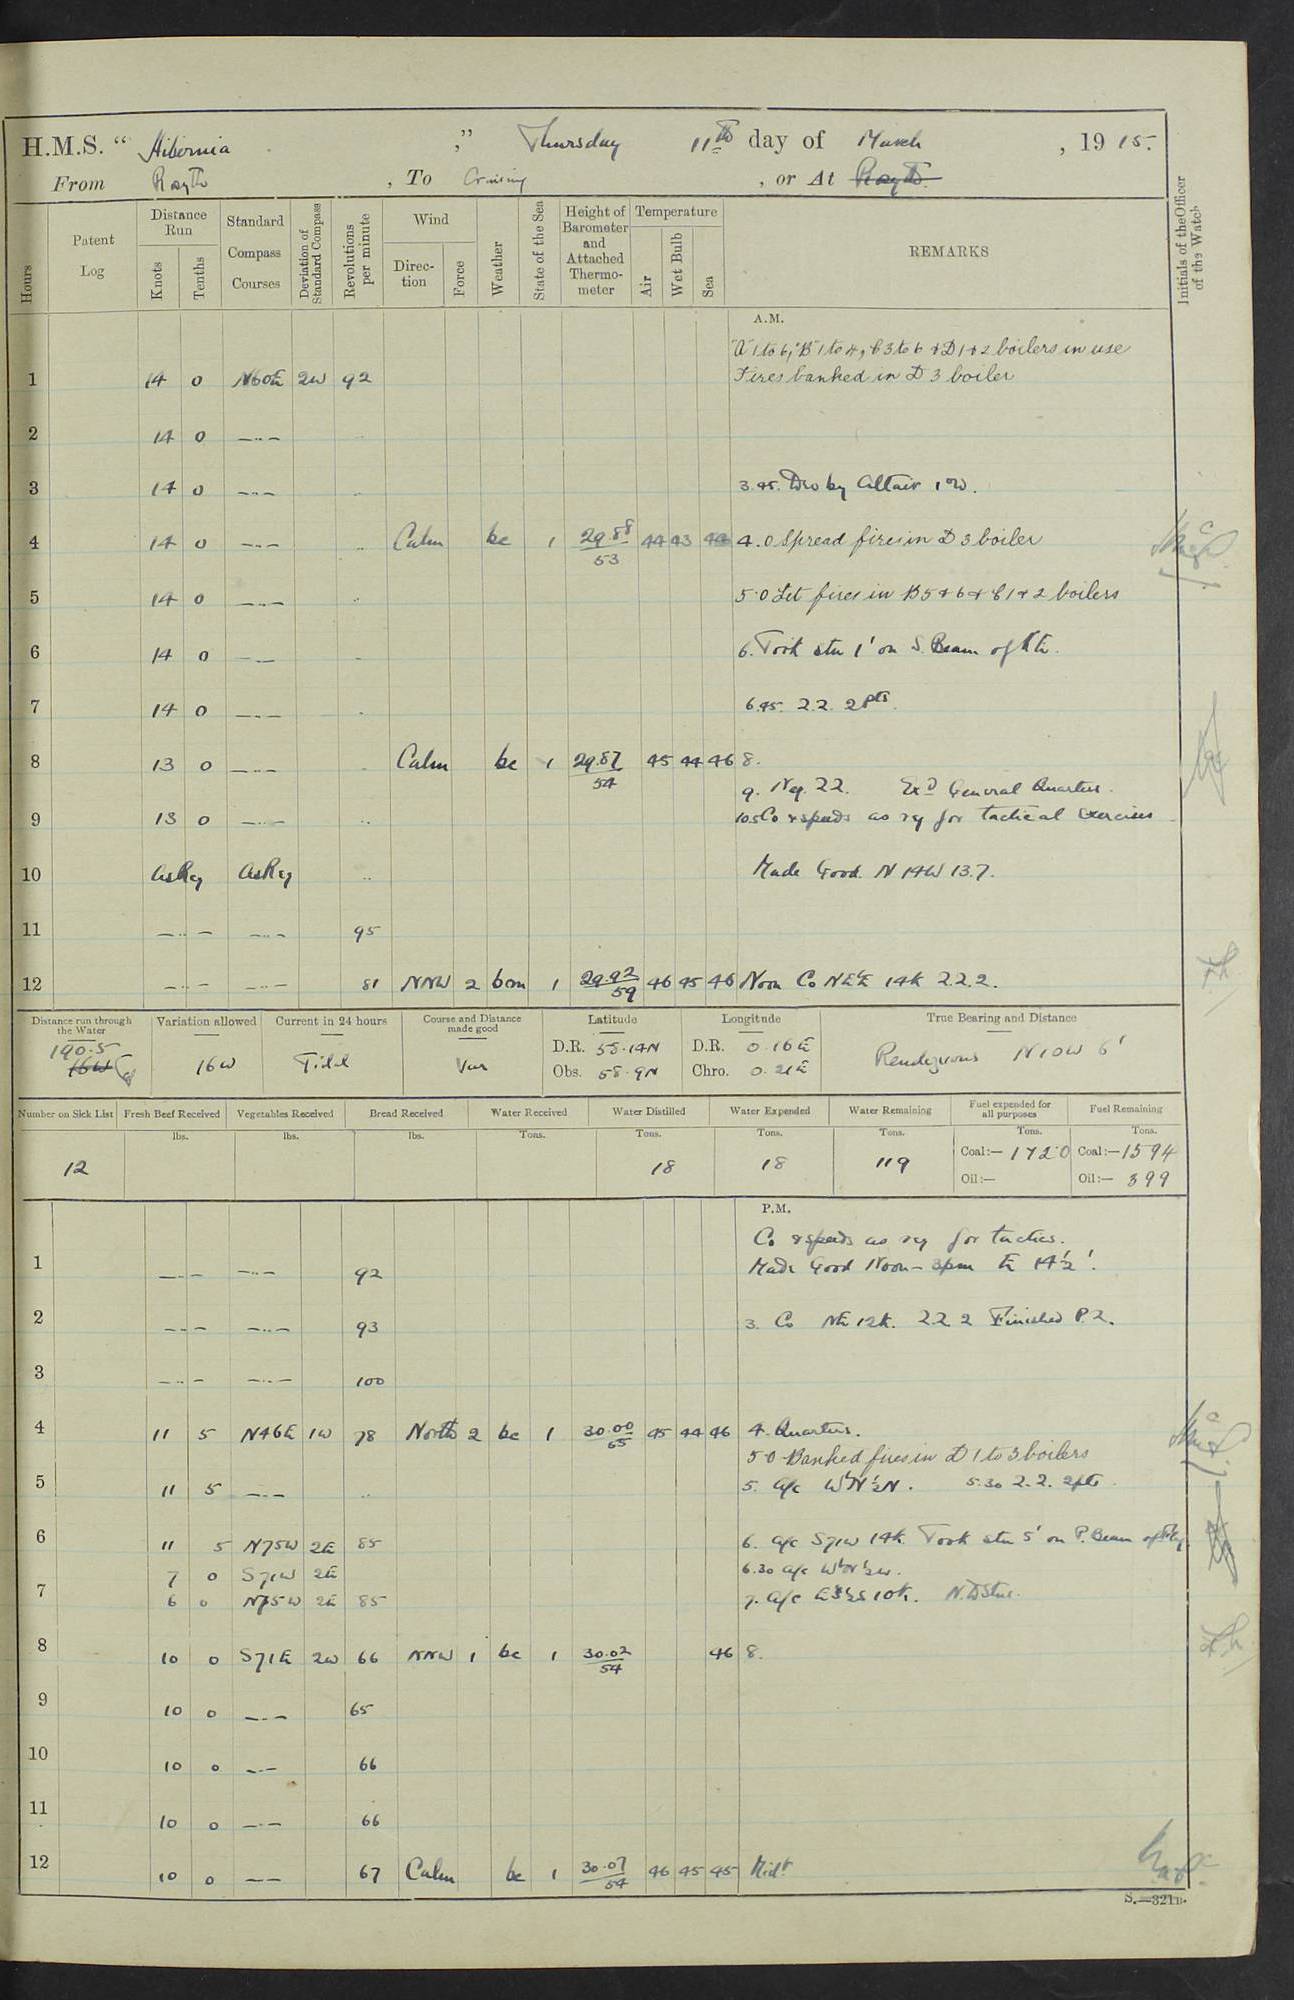 H.M.S. " Hibernia ," Thursday 11th day of March , 19 15.
From Rosyth , To Cruising , or At Rosyth.
Hours
Patent Log
Distance Run
Knots
Tenths
Standard Compass Courses
Deviation of Standard Compass
Revolutions per minute
Wind
Direction
Force
Weather
State of the Sea
Height of Barometer and Attached Thermometer
Temperature
Air
Wet Bulb
Sea
REMARKS
Initials of the Officer of the Watch
A.M.
'A' 1 to 6, 'B' 1 to 4, C 3 to 6 & D 1 & 2 boilers in use
1 14 0 N60E 2W 92 Fires banked in D 3 boiler
2 14 0 —..— ..
3 14 0 —..— .. 3.45. Dev by Altair 1°W.
4 14 0 —..— .. Calm bc 1 29.88/53 44 43 44 4.0 Spread fires in D 3 boiler
5 14 0 —..— .. 5.0 Lit fires in B 5 & 6 & C 1 & 2 boilers
6 14 0 —..— .. 6. Took stn 1' on S. Beam of
7 14 0 —..— .. 6.45. 2.2. 2pts.
8 13 0 —..— .. Calm bc 1 29.87/54 45 44 46 8.
9. Neg. 22. Exd General Quarters.
9 13 0 —..— .. 10.5 Co & speeds as rq for tactical Exercises
10 As Rq As Rq .. Made Good. N 14W 13.7.
11 —..— —..— 95
12 —..— —..— 81 NNW 2 bcm 1 29.92/59 46 45 46 Noon Co NE'E 14k 2.2.2.
Distance run through the Water
190.5
16W
Variation allowed
16W
Current in 24 hours
Tidl
Course and Distance made good
Var
Latitude
D.R. 58.14N
Obs. 58.9N
Longitude
D.R. 0.16E
Chro. 0.21E
True Bearing and Distance
Rendezvous N10W 6'
Number on Sick List
Fresh Beef Received
Vegetables Received
Bread Received
Water Received
Water Distilled
Water Expended
Water Remaining
Fuel expended for all purposes
Fuel Remaining
lbs. lbs. lbs. Tons. Tons. Tons. Tons. Tons. Tons.
12 18 18 119
Coal:— 172.0 Coal:— 1594
Oil:— Oil:— 399
P.M.
Co & speeds as rq for tactics.
1 —..— —..— 92 Made Good Noon – 3pm E 14½'.
2 —..— —..— 93 3. Co NE 12k. 2.2.2 Finished P.Z.
3 —..— —..— 100
4 11 5 N46E 1W 78 North 2 bc 1 30.00/55 45 44 46 4. Quarters.
5.0 Banked fires in D 1 to 3 boilers
5 11 5 —..— .. 5. a/c W'N½N. 5.30 2.2. 2pts
6 11 5 N75W 2E 85 6. a/c S71W 14k. Took stn 5' on P. Beam of Flag
7 0 S71W 2E 6.30 a/c W'N½W.
7 6 0 N75W 2E 85 7. a/c E'S½S 10k. N.D Stns.
8 10 0 S71E 2W 66 NNW 1 bc 1 30.02/54 46 8.
9 10 0 —..— 65
10 10 0 —..— 66
11 10 0 —..— 66
12 10 0 —..— 67 Calm bc 1 30.07/54 46 45 45 Midt
S.—321B.